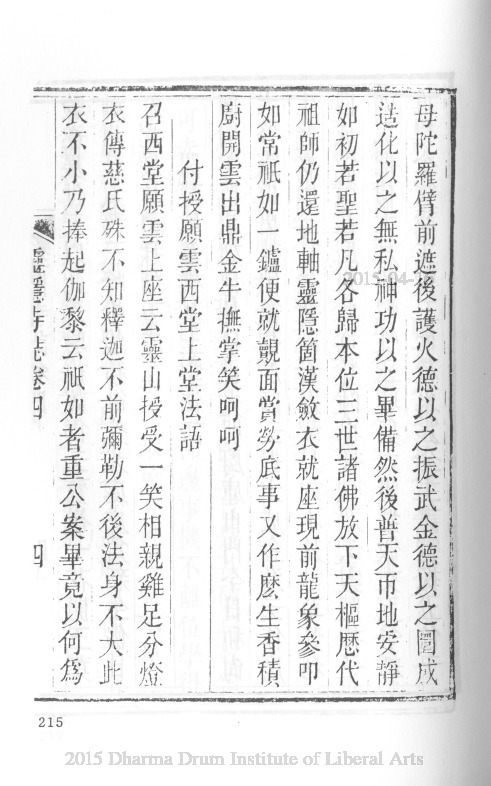 母陀羅臂前遮後護火德以之振武金德以之圓成
造化以之無私神功以之畢備然後普天帀地安靜
如初若聖若凡各歸本位三世諸佛放下天樞歷代
祖師仍還地軸靈隱箇漢斂衣就座現前龍象參叩
如常祇如一鑪便就覿面賞勞底事又作麼生香積
廚開雲出鼎金牛撫掌笑呵呵
付授願雲西堂上堂法語
召西堂願雲上座云靈山授受一笑相親雞足分燈
衣傳慈氏殊不知釋迦不前彌勒不後法身不大此
衣不小乃捧起伽黎云祇如者重公案畢竟以何為
靈隱寺誌卷四
四
215
2015-04
2015 Dharma Drum Institute of Liberal Arts